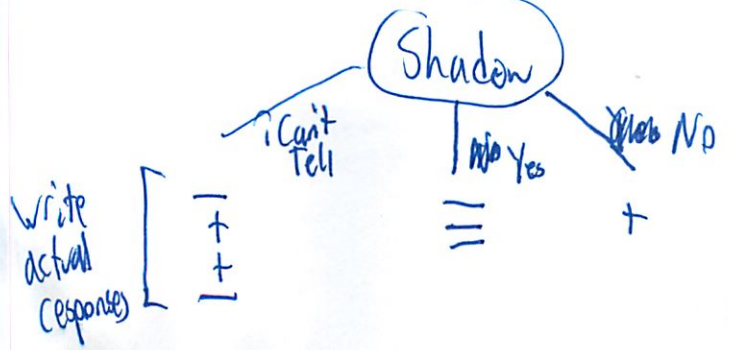 Shadow
i Can't
Tell
Yes
No
Write
actual
responses
−
+
+
−
−
−
−
+